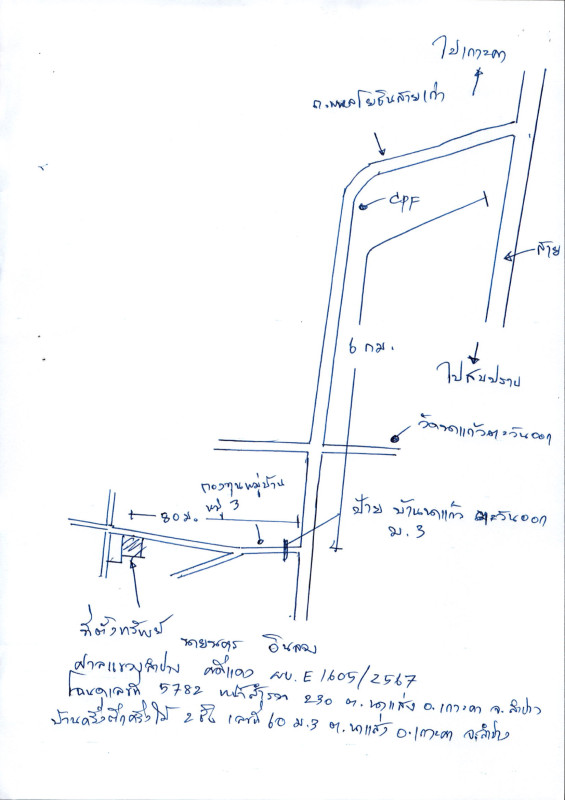 ไปเกาะคา
ถ.พหลโยธินสายเก่า
CPF
สาย
6 กม.
ไปสบปราบ
วัดนาแก้วตะวันออก
กองทุนหมู่บ้าน
หมู่ 3
80 ม.
ป้าย บ้านนาแก้ว ตะวันออก
ม.3
ที่ตั้งทรัพย์
นายนคร
ศาลแขวงลำปาง คดีแดง ผบ.E 1605/2567
โฉนดเลขที่ 5782 หน้าสำรวจ 230 ต.นาแส่ง อ.เกาะคา จ.ลำปาง
บ้านครึ่งตึกครึ่งไม้ 2 ชั้น เลขที่ 60 ม.3 ต.นาแส่ง อ.เกาะคา จ.ลำปาง